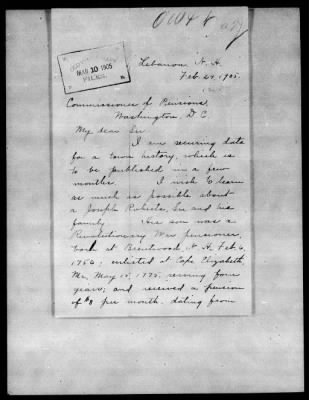 MAR 10 1905
Lebanon N. H.
Feb. 27, 1905.
Commissioner of Pensions,
Washington, D. C.
My dear Sir
I am securing data
for a town history, which is
to be published in a few
months. I wish to learn
as much as possible about
a Joseph Roberts, Sr and his
family. His son was a
Revolutionary War pensioner,
born at Brentwood, N. H. Feb. 6,
1756; enlisted at Cape Elizabeth
Me. May 15, 1775, serving four
years; and received a pension
of $8 per month, dating from